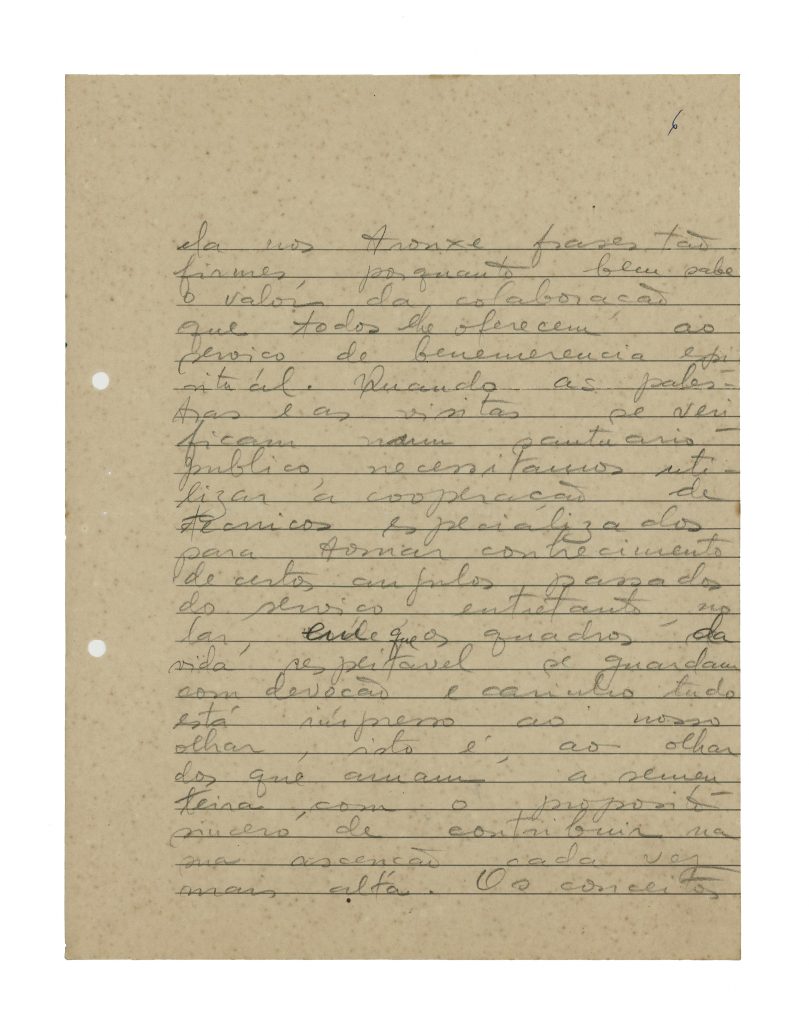 6
ela nos trouxe frases tão
firmes, porquanto bem sabe
o valor da colaboração
que todos lhe oferecem ao
serviço de benemerencia espi
ritual. Quando as pales-
tras e as visitas se veri
ficam num santuario
publico necessitamos uti-
lizar a cooperação de
tecnicos especializados
para tomar conhecimento
de certos angulos passados
do serviço entretanto, no
lar, em que os quadros da
vida respeitavel se guardam
com devoção e carinho tudo
está impresso ao nosso
olhar, isto é, ao olhar
dos que amam a semen
teira com o proposito
sincero de contribuir na
sua ascenção cada vez
mais alta. Os conceitos